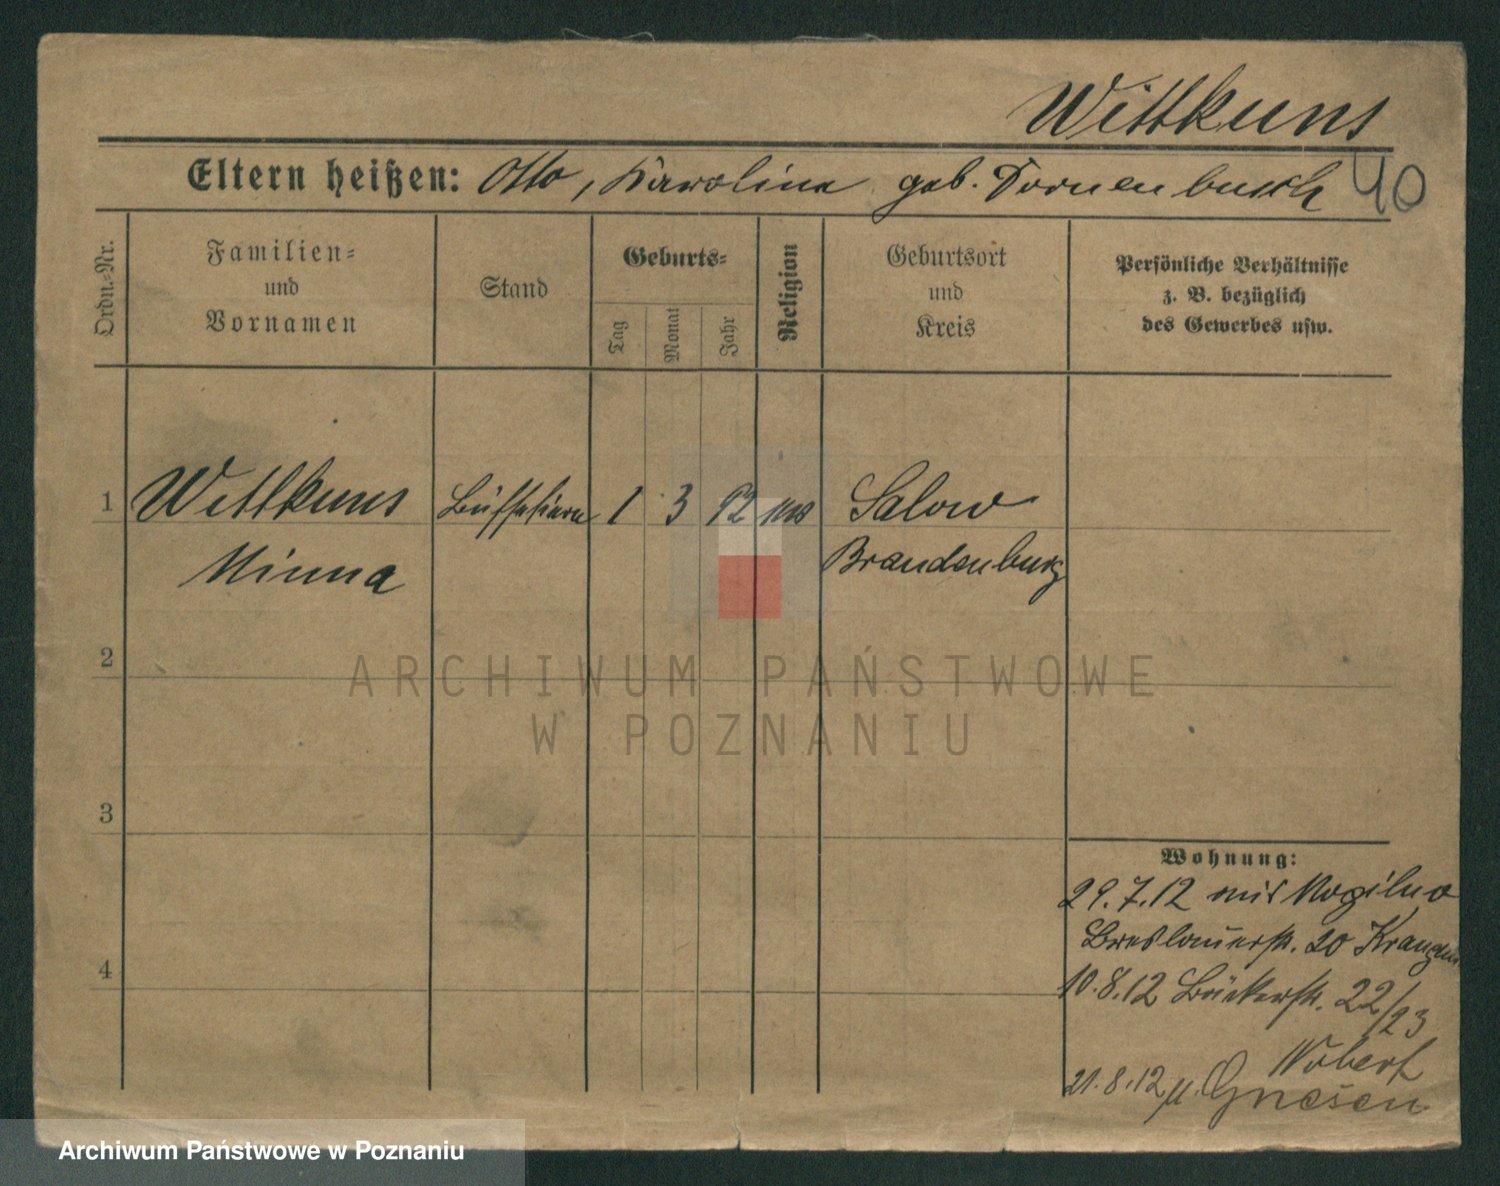 Wittkuns
Eltern heißen: Otto, Karolina geb. Dornenbusch
40
Ordn.-Nr.
Familien- und Vornamen
Stand
Geburts-
Tag
Monat
Jahr
Religion
Geburtsort und Kreis
Persönliche Verhältnisse
z. B. bezüglich
des Gewerbes usw.
1 Wittkuns 1 3 92 Salow
Minna Brandenburg
2
ARCHIWUM PAŃSTWOWE
W POZNANIU
3
Wohnung:
29.7.12 aus Mogilno
Breslauerstr. 20
4
10.8.12 Bäckerstr. 22/23
21.8.12 n. Gnesen
Archiwum Państwowe w Poznaniu